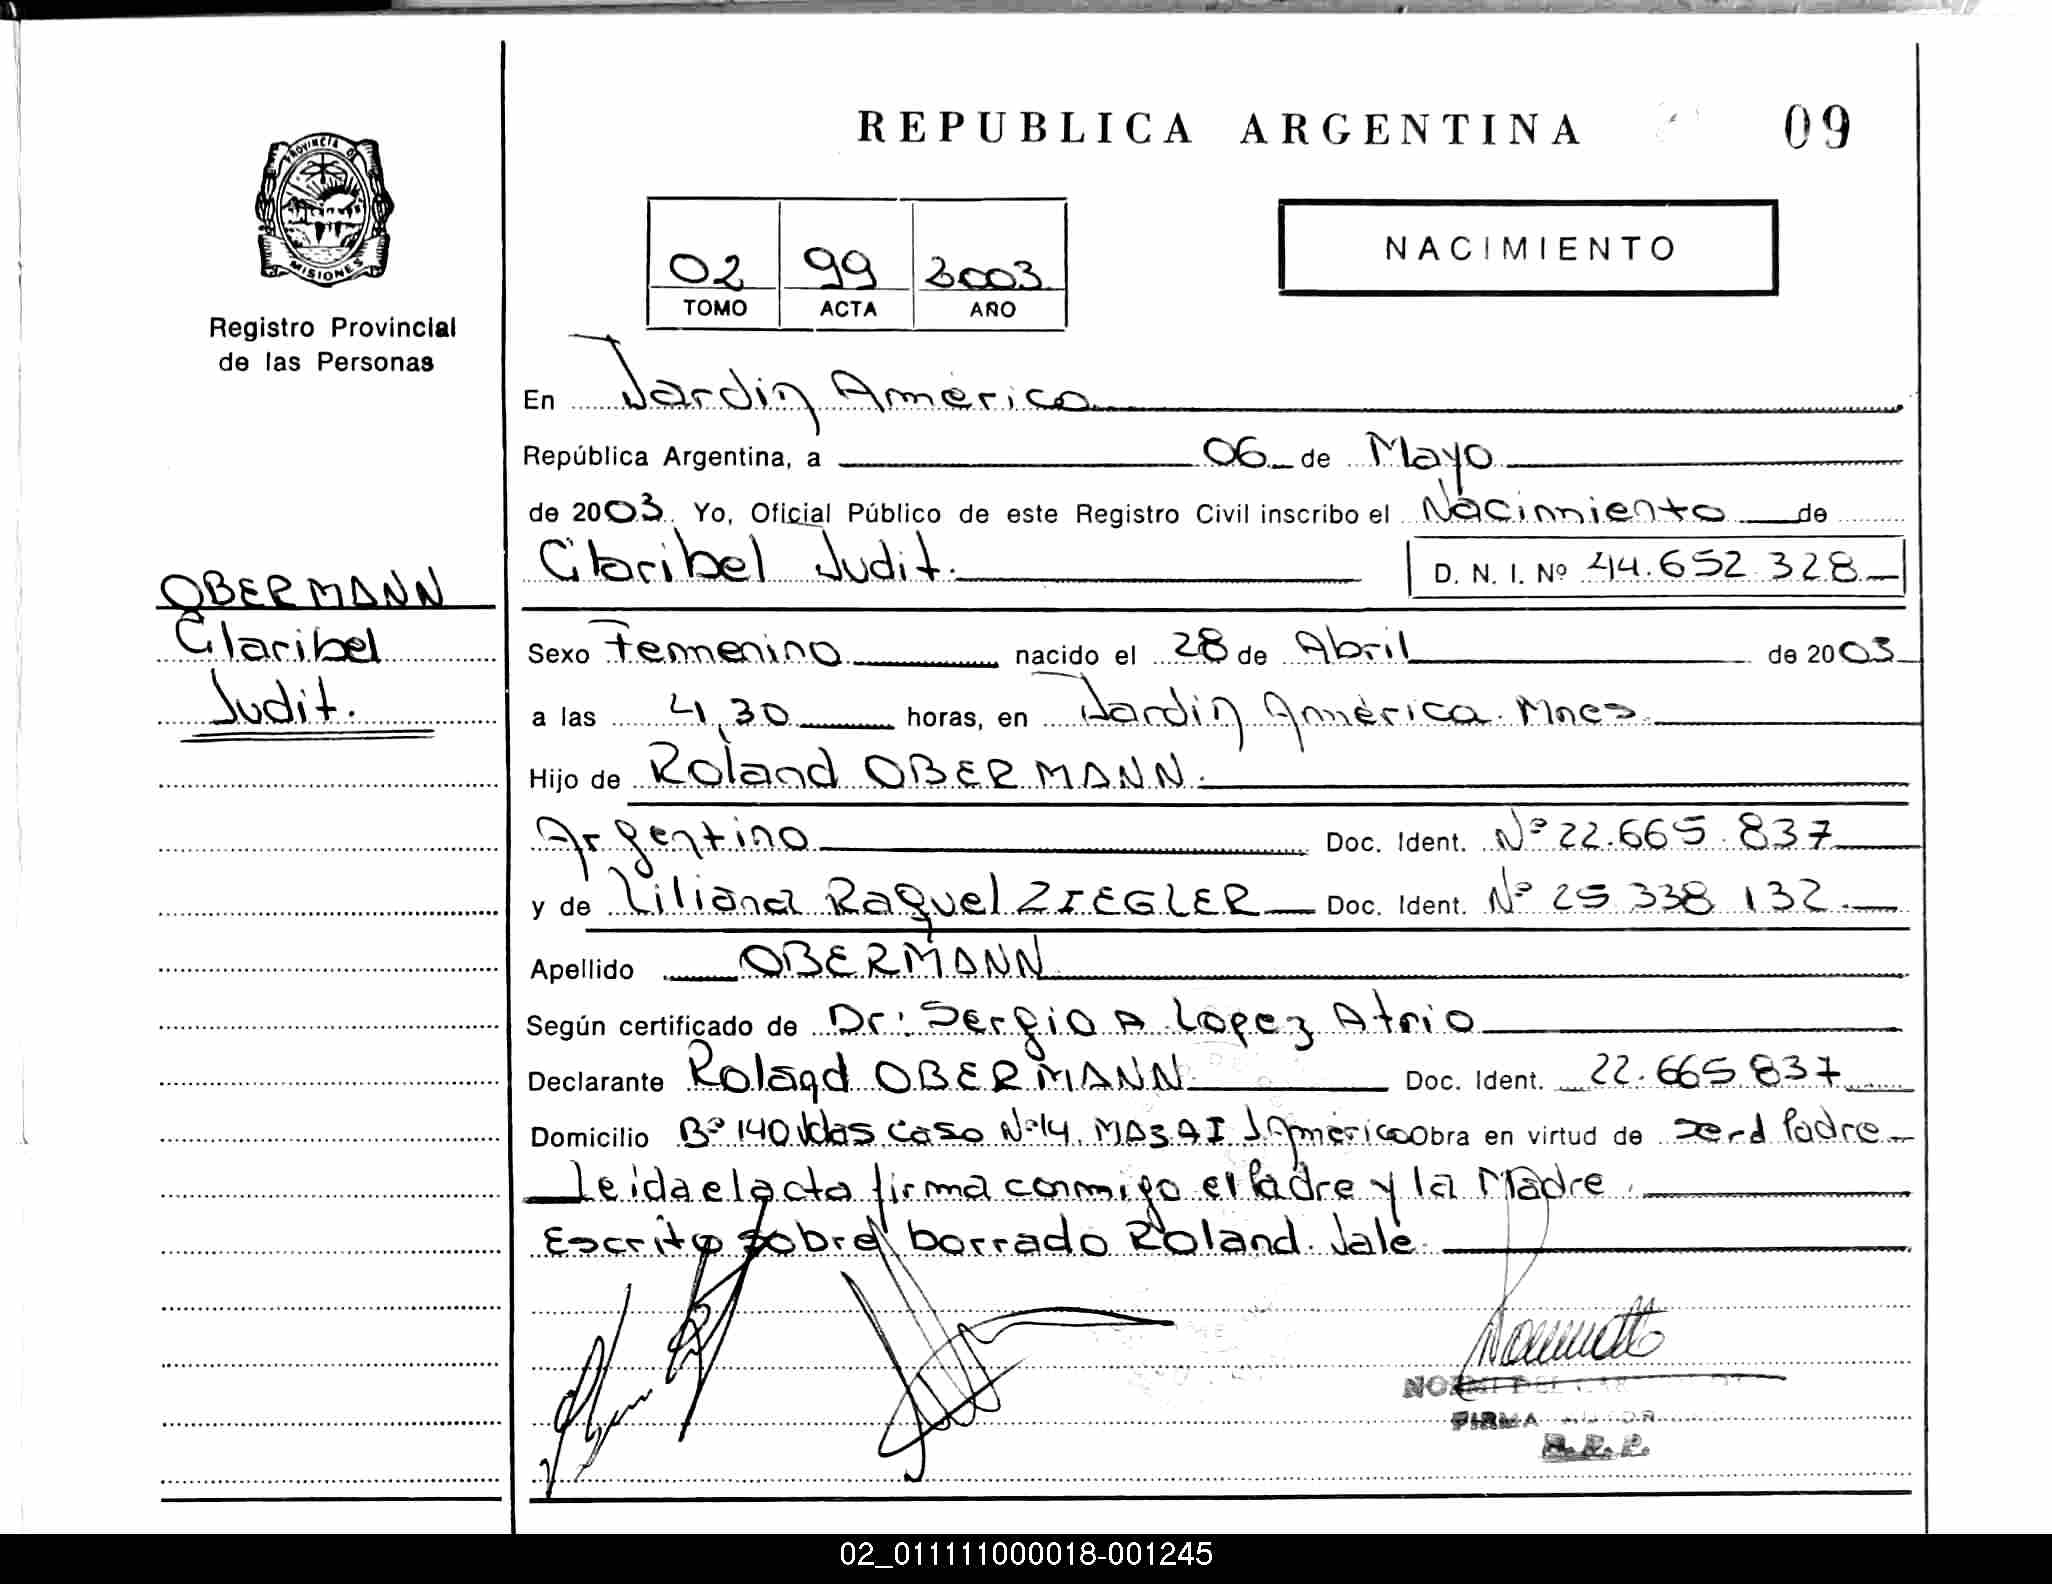 REPUBLICA ARGENTINA
09
PROVINCIA DE
MISIONES
Registro Provincial
de las Personas
02 99 2003
TOMO ACTA AÑO
NACIMIENTO
En Jardin América
República Argentina, a 06 de Mayo
de 2003. Yo, Oficial Público de este Registro Civil inscribo el Nacimiento de
Claribel Judit. D. N. I. Nº 44.652.328
OBERMANN
Claribel
Judit.
Sexo Femenino nacido el 28 de Abril de 2003
a las 4,30 horas, en Jardin América. Mnes.
Hijo de Roland OBERMANN.
Argentino Doc. Ident. Nº 22.665.837
y de Liliana Raquel ZIEGLER Doc. Ident. Nº 25 338 132.
Apellido OBERMANN
Según certificado de Dr: Sergio A Lopez Atrio
Declarante Roland OBERMANN Doc. Ident. 22.665 837
Domicilio Bº 140 Casa Nº14 J América Obra en virtud de Padre
Leida el acta firma conmigo el Padre y la Madre.
Escrito sobre borrado Roland. Vale.
FIRMA
R. P. P.
02_011111000018-001245